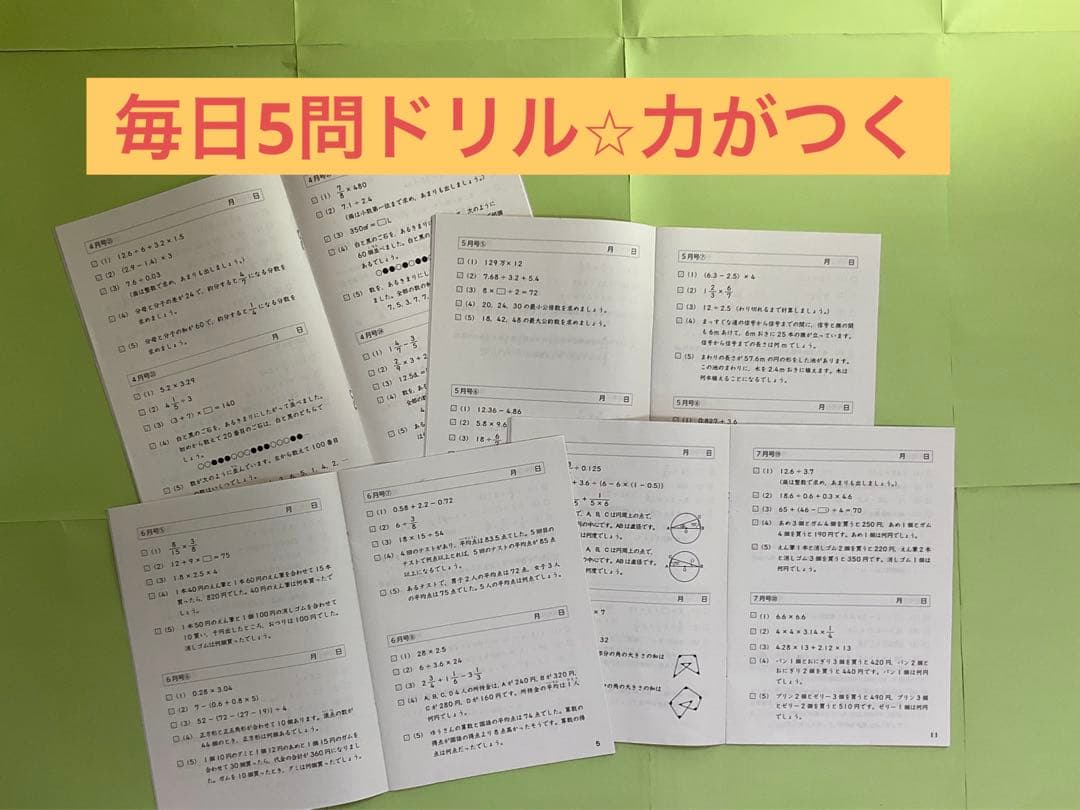 毎日5問ドリル☆力がつく
4月号㉑
月 日
(1) 12.6÷6+3.2×1.5
(2) (2.9−1.4)×3
(3) 7.6÷0.03
(商は整数で求め、あまりも出しましょう。)
(4) 分母と分子の差が24で、約分すると4/7になる分数を
求めましょう。
(5) 分母と分子の和が60で、約分すると1/4になる分数を
求めましょう。
月 日
(1) 5.2×3.29
(2) 4 1/5÷3
(3) (3+7)×□=140
(4) 白と黒のご石を、あるきまりにしたがって並べました。
初めから数えて20番目のご石は、白と黒のどちらで
しょう。
○○●●●○○●●●○○○●●
(5) 数が次のように並んでいます。左から数えて100番目
の数はいくつでしょう。
(1) 7/8×480
(2) 7.1÷2.4
(商は小数第一位まで求め、あまりも出しましょう。)
(4) 白と黒のご石を、あるきまりに
60個並べました。白と黒の
あるでしょう。
(5) 数を、あるきまりにし
ました。全部の数の
7、5、3、7、7、
4月号㉔
(1) 1 4/7−3/5
(2) 2/9×3+2
(3) 12.5
(4) 数を、ある
全部の
4、
(5) ある
は何
5月号⑤
月 日
(1) 129万×12
(2) 7.68÷3.2+5.4
(3) 8×□÷2=72
(4) 20、24、30の最小公倍数を求めましょう。
(5) 18、42、48の最大公約数を求めましょう。
5月号⑥
月 日
(1) 12.36−4.86
(2) 5.8×9.6
(3) 18÷6/7
5月号⑦
月 日
(1) (6.3−2.5)×4
(2) 1 2/3×6/7
(3) 12÷2.5 (わり切れるまで計算しましょう。)
(4) まっすぐな道の信号から信号までの間に、信号と旗の間
も6mあけて、6mおきに25本の旗が立っています。
信号から信号までの長さは何mでしょう。
(5) まわりの長さが57.6mの円の形をした池があります。
この池のまわりに、木を2.4mおきに植えます。木は
何本植えることになるでしょう。
5月号⑧
月 日
(1) 0.827+3.6
6月号⑤
月 日
(1) 8/15×3/8
(2) 12+9×□=75
(3) 1.8×2.5×4
(4) 1本40円のえん筆と1本60円のえん筆を合わせて15本
買ったら、820円でした。40円のえん筆は何本買ったで
しょう。
(5) 1本50円のえん筆と1個100円の消しゴムを合わせて
10買い、千円出したところ、おつりは100円でした。
消しゴムは何個買ったでしょう。
6月号⑥
月 日
(1) 0.28×3.04
(2) 7−(0.6+0.8×5)
(3) 52−{72−(27−19)}÷4
(4) 正方形と正五角形が合わせて10個あります。頂点の数が
44個のとき、正方形は何個あるでしょう。
(5) 1個10円のグミと1個12円のあめと1個15円のガムを
合わせて30個買ったら、代金の合計が360円になりまし
た。ガムを10個買ったとき、グミは何個買ったでしょう。
6月号⑦
月 日
(1) 0.58+2.2−0.72
(2) 6÷3/8
(3) 18×15÷54
(4) 4回のテストがあり、平均点は83.5点でした。5回目の
テストで何点以上とれば、5回のテストの平均点が85点
以上になるでしょう。
(5) あるテストで、男子2人の平均点は72点、女子3人
の平均点は75点でした。5人の平均点は何点でしょう。
6月号⑧
月 日
(1) 28×2.5
(2) 6÷3.6×24
(3) 2 3/4+1 1/6−3 1/3
(4) A、B、C、D4人の所持金は、Aが240円、Bが320円、
Cが280円、Dが160円です。所持金の平均は1人
何円でしょう。
(5) ゆうさんの算数と国語の平均点は74点でした。算数の
得点が国語の得点より8点高かったそうです。算数の得
点は何点だったでしょう。
5
月 日
÷0.125
+3.6÷{6−6×(1−0.5)}
+1/(5×6)
て、A、B、Cは円周上の点で、
の中心です。ABは直径です。
は何度でしょう。
、A、B、Cは円周上の点で、
つ中心です。ABは直径です。
何度でしょう。
月 日
×7
32
部分の角の大きさの和は
の角の大きさの和は
7月号⑲
月 日
(1) 12.6÷3.7
(商は整数で求め、あまりも出しましょう。)
(2) 18.6÷0.6+0.3×4.6
(3) 65+(46−□)÷4=70
(4) あめ3個とガム4個を買うと250円、あめ1個とガム
4個を買うと190円です。あめ1個は何円でしょう。
(5) えん筆1本と消しゴム2個を買うと220円、えん筆2本
と消しゴム3個を買うと350円です。消しゴム1個は
何円でしょう。
7月号⑳
月 日
(1) 6.6×6.6
(2) 4×4×3.14×1/4
(3) 4.28×13+2.12×13
(4) パン1個とおにぎり3個を買うと420円、パン2個と
おにぎり2個を買うと440円です。パン1個は何円
でしょう。
(5) プリン2個とゼリー3個を買うと490円、プリン3個
とゼリー2個を買うと510円です。ゼリー1個は何円で
しょう。
11